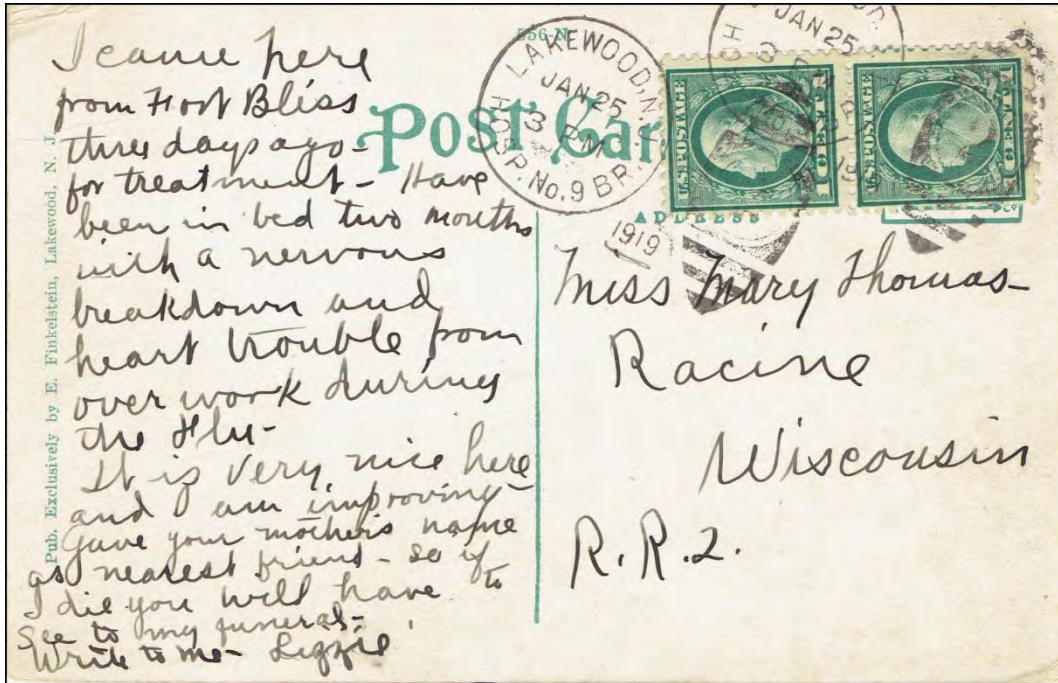 I came here
from Fort Bliss
three days ago-
for treatment- Have
been in bed two months
with a nervous
breakdown and
heart trouble from
over work during
the Flu-
It is very nice here
and I am improving-
Gave your mother's name
as nearest friend- so if
I die you will have to
see to my funeral-
Write to me- Lizzie
Pub. Exclusively by E. Finkelstein, Lakewood, N. J.
556-N
Post Car
LAKEWOOD, N.J.
JAN 25
3 PM
1919
HOSP. No. 9 BR.
JAN 25
3
U.S. POSTAGE
1 CENT 1
U.S. POSTAGE
1 CENT 1
ADDRESS
Miss Mary Thomas-
Racine
Wisconsin
R.R.2.